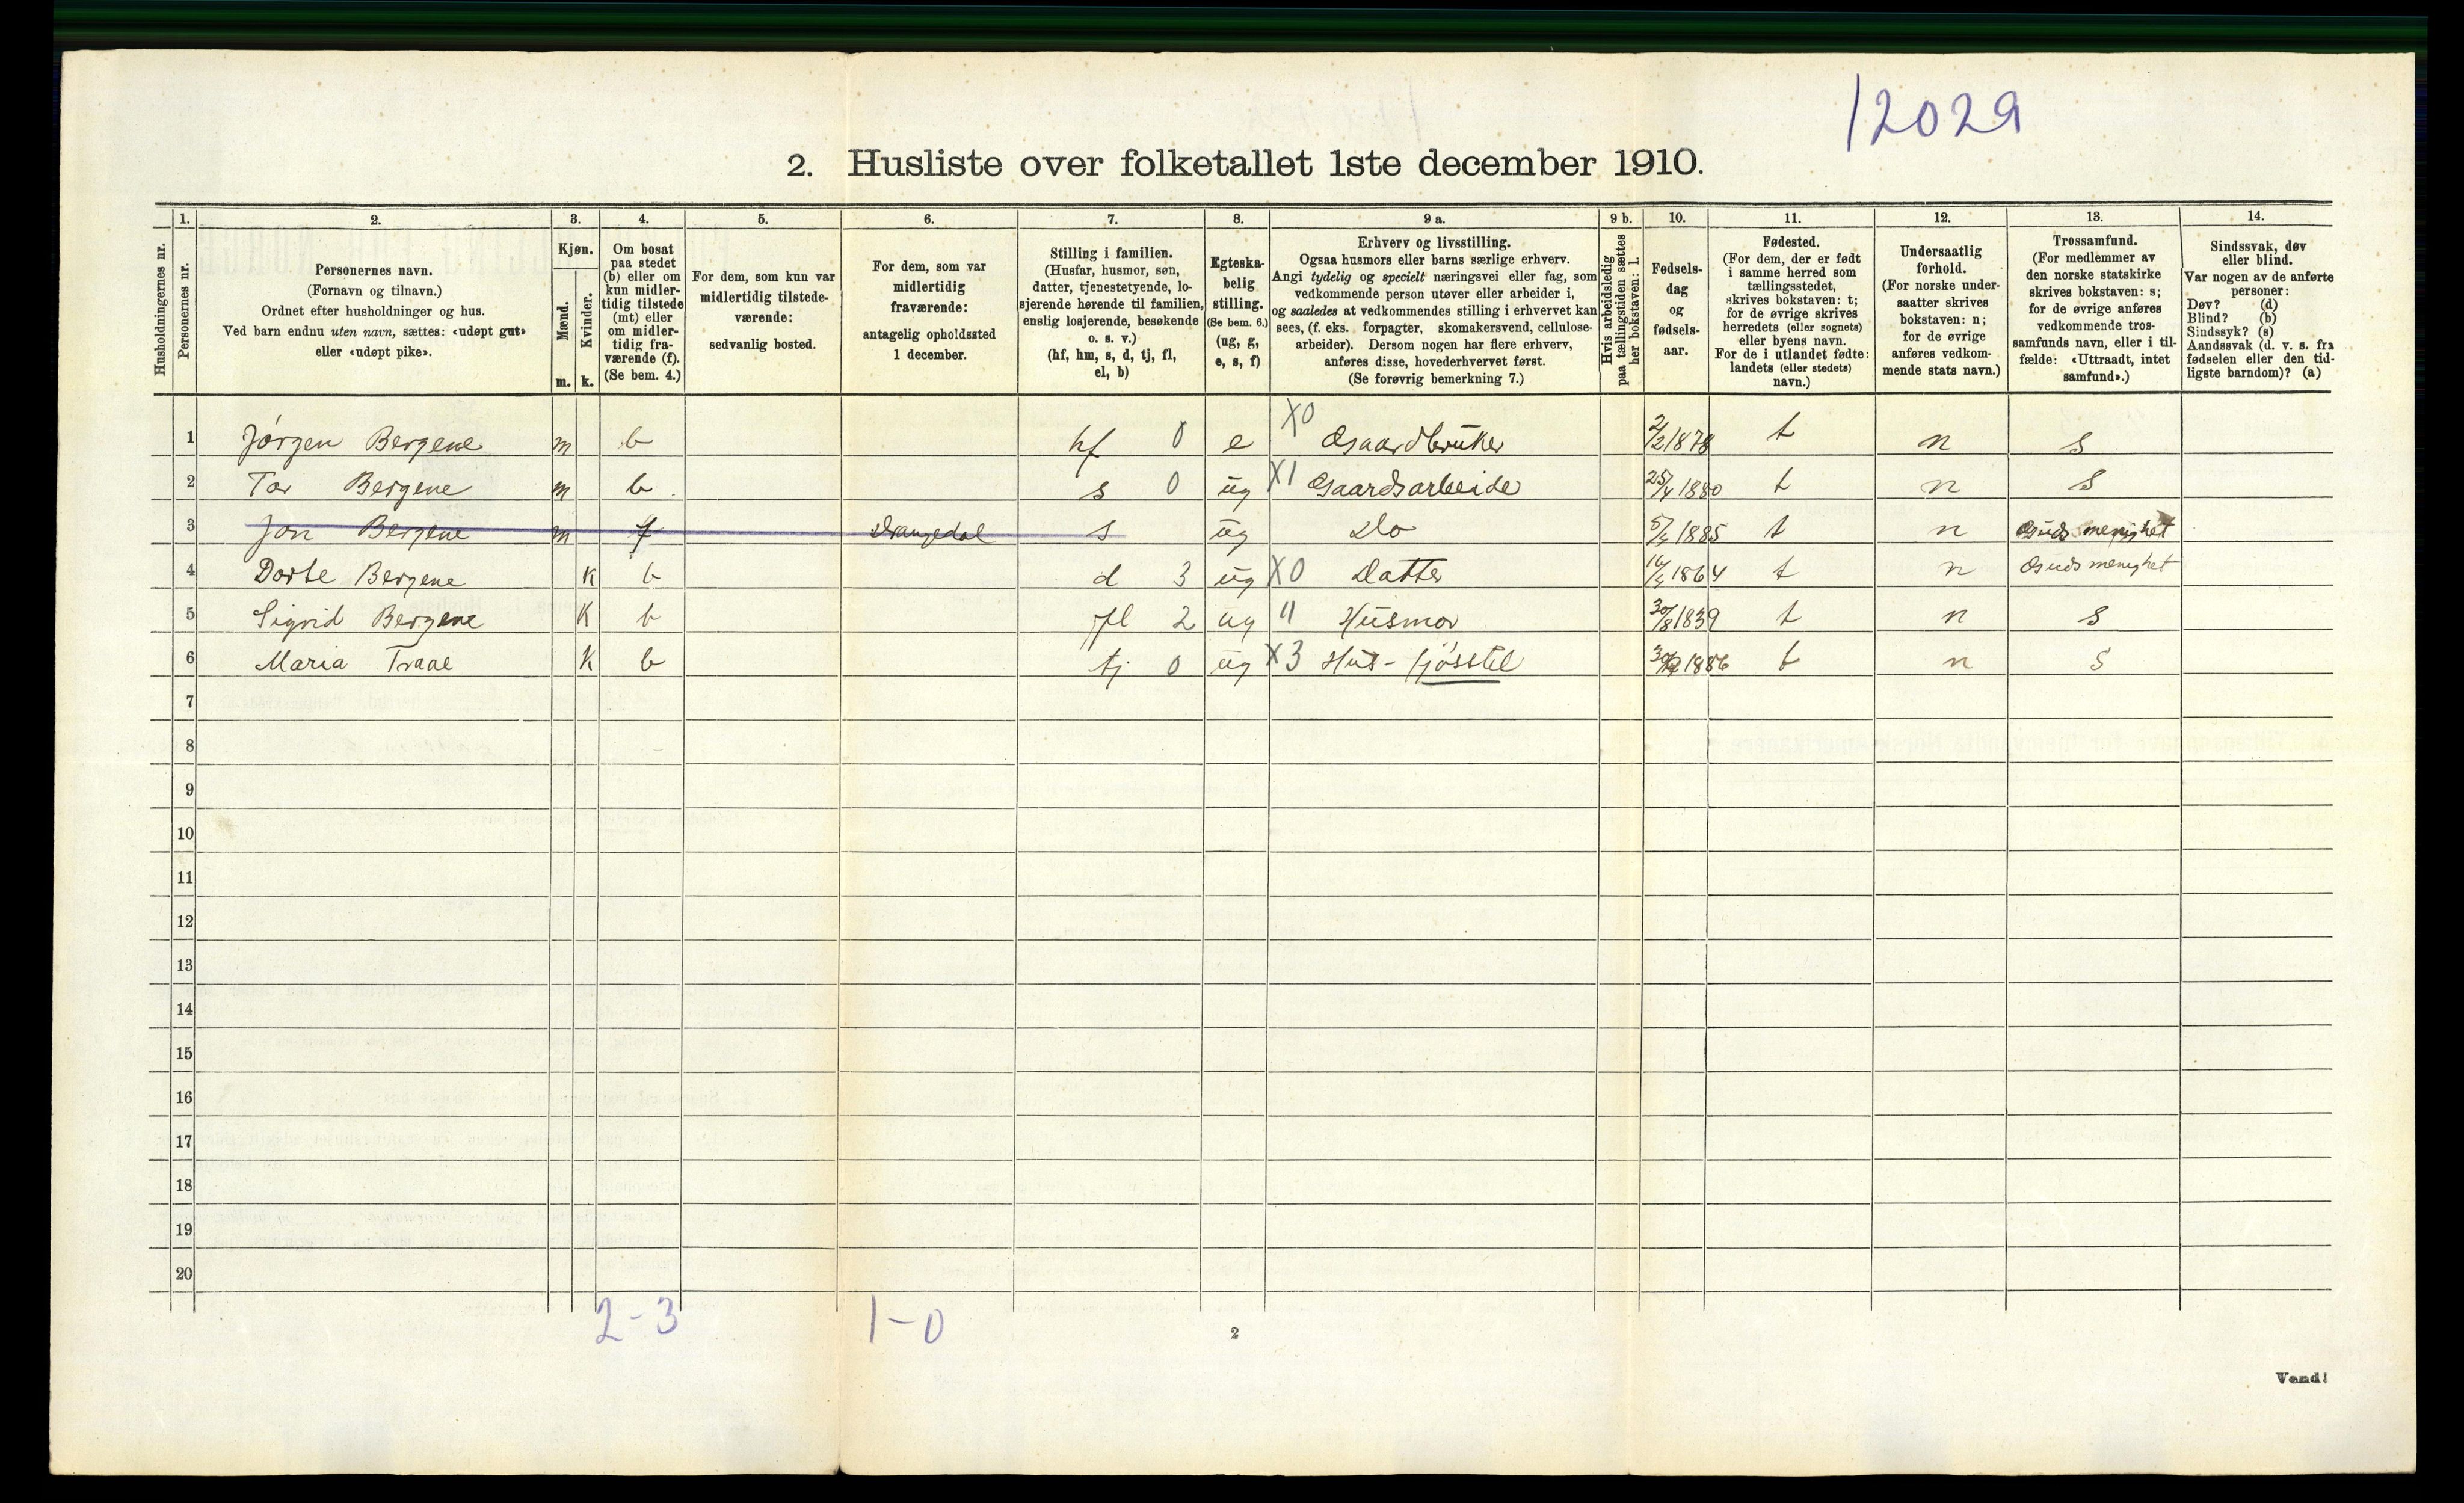 12029
2. Husliste over folketallet 1ste december 1910.
1. 2. 3. 4. 5. 6. 7. 8. 9 a. 9 b. 10. 11. 12. 13. 14.
Husholdningernes nr.
Personernes nr.
Personernes navn.
(Fornavn og tilnavn.)
Ordnet efter husholdninger og hus.
Ved barn endnu uten navn, sættes: «udøpt gut»
eller «udøpt pike».
Kjøn.
Mænd.
Kvinder.
m. k.
Om bosat
paa stedet
(b) eller om
kun midler-
tidig tilstede
(mt) eller
om midler-
tidig fra-
værende (f).
(Se bem. 4.)
For dem, som kun var
midlertidig tilstede-
værende:
sedvanlig bosted.
For dem, som var
midlertidig
fraværende:
antagelig opholdssted
1 december.
Stilling i familien.
(Husfar, husmor, søn,
datter, tjenestetyende, lo-
sjerende hørende til familien,
enslig losjerende, besøkende
o. s. v.)
(hf, hm, s, d, tj, fl,
el, b)
Egteska-
belig
stilling.
(Se bem. 6.)
(ug, g,
e, s, f)
Erhverv og livsstilling.
Ogsaa husmors eller barns særlige erhverv.
Angi tydelig og specielt næringsvei eller fag, som
vedkommende person utøver eller arbeider i,
og saaledes at vedkommendes stilling i erhvervet kan
sees, (f. eks. forpagter, skomakersvend, cellulose-
arbeider). Dersom nogen har flere erhverv,
anføres disse, hovederhvervet først.
(Se forøvrig bemerkning 7.)
Hvis arbeidsledig
paa tællingstiden sættes
her bokstaven: l.
Fødsels-
dag
og
fødsels-
aar.
Fødested.
(For dem, der er født
i samme herred som
tællingsstedet,
skrives bokstaven: t;
for de øvrige skrives
herredets (eller sognets)
eller byens navn.
For de i utlandet fødte:
landets (eller stedets)
navn.)
Undersaatlig
forhold.
(For norske under-
saatter skrives
bokstaven: n;
for de øvrige
anføres vedkom-
mende stats navn.)
Trossamfund.
(For medlemmer av
den norske statskirke
skrives bokstaven: s;
for de øvrige anføres
vedkommende tros-
samfunds navn, eller i til-
fælde: «Uttraadt, intet
samfund».)
Sindssvak, døv
eller blind.
Var nogen av de anførte
personer:
Døv? (d)
Blind? (b)
Sindssyk? (s)
Aandssvak (d. v. s. fra
fødselen eller den tid-
ligste barndom)? (a)
1 Jørgen Bergene m b hf 0 e X0 Gaardbruker 2/2 1878 t n s
2 Tor Bergene m b s 0 ug X1 Gaardsarbeide 25/4 1880 t n s
3 Jon Bergene m f Drangedal s ug Do 1885 t n Gudsmenighet
4 Dorte Bergene k b d 3 ug X0 Datter 1864 t n Gudsmenighet
5 Sigrid Bergene K b fl 2 ug " Husmor 30/8 1839 t n s
6 Maria Traae K b tj 0 ug X3 Hus-fjøsstel 1886 t n s
7
8
9
10
11
12
13
14
15
16
17
18
19
20
2-3 1-0
2
Vend!